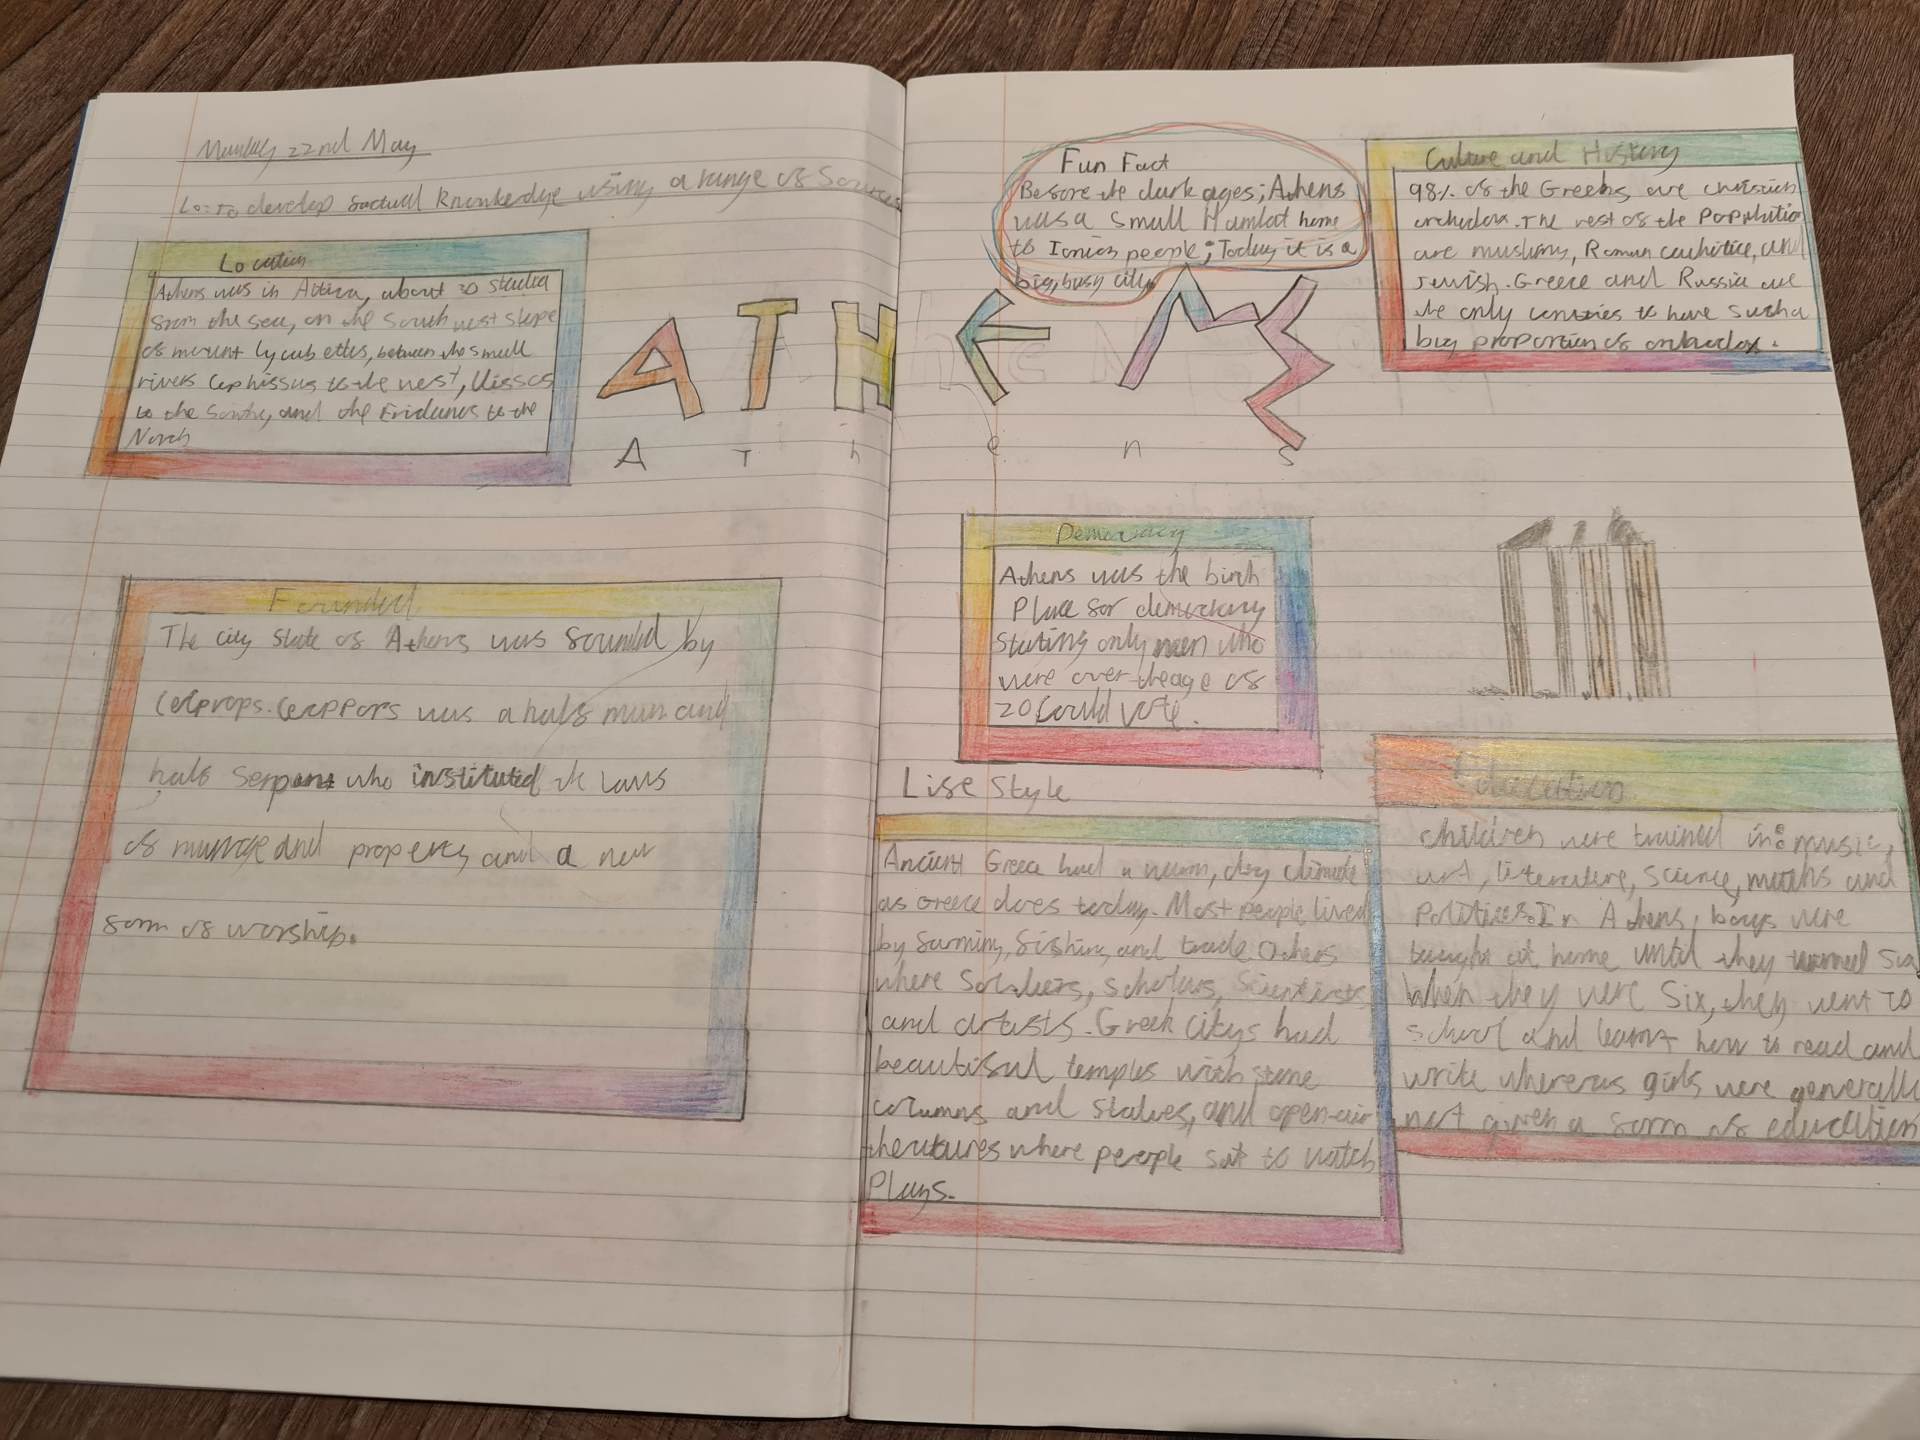 Monday 22nd May
Lo: To develop factual knowledge using a range of Sources
Location
Athens was in Attica, about 30 stadia
from the sea, on the South west slope
of mount lycabettus, between the small
rivers Cephissus to the west, Ilissos
to the South, and the Eridanos to the
North
ATHENS
A T h e n s
Founded
The city state of Athens was founded by
Cecprops. Cecppors was a half man and
half Serpant who instituted the laws
of marrage and property and a new
form of worship.
Fun Fact
Before the dark ages; Athens
was a small Hamlat home
to Ionien people; Today it is a
big, busy city
Culture and History
98% of the Greeks are christien
orthodox. The rest of the Population
are muslims, Roman cathitice, and
Jewish. Greece and Russia are
the only contries to have such a
big proportion of orthodox.
Democracy
Athens was the birth
Place for democracy
Stating only men who
were over the age of
20 Could vote.
Life Style
Ancient Greece had a warm, dry climate
as Greece does today. Most people lived
by farming, fishing, and trade. Others
where Soldiers, scholars, Scientists
and artists. Greek citys had
beautiful temples with stone
columns and statues, and open-air
theatures where people sat to watch
Plays.
Education
children were trained in: music,
art, literature, Science, maths and
Politices. In Athens, boys were
taught at home until they turned six
When they were Six, they went to
school and learnt how to read and
write whereas girls were generally
not given a form of education